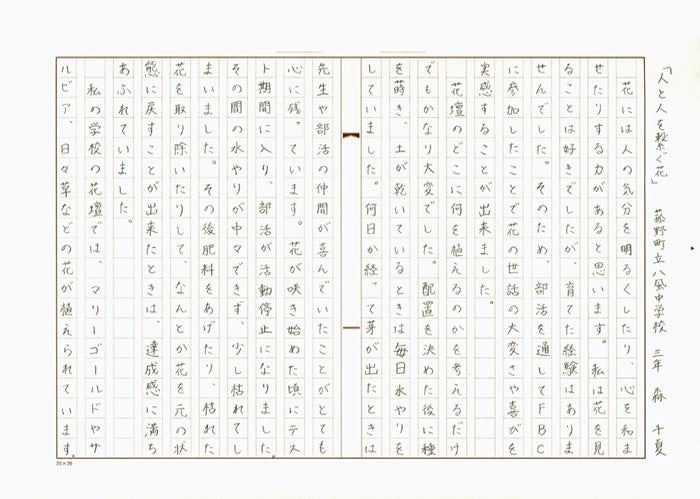 「人と人を繋ぐ花」　菰野町立八風中学校　三年　森　千夏
　花には人の気分を明るくしたり、心を和ま
せたりする力があると思います。私は花を見
ることは好きでしたが、育てた経験はありま
せんでした。そのため、部活を通してFBC
に参加したことで花の世話の大変さや喜びを
実感することが出来ました。
　花壇のどこに何を植えるのかを考えるだけ
でもかなり大変でした。配置を決めた後に種
を蒔き、土が乾いているときは毎日水やりを
していました。何日か経って芽が出たときは
先生や部活の仲間が喜んでいたことがとても
心に残っています。花が咲き始めた頃にテス
ト期間に入り、部活が活動停止になりました。
その間の水やりが中々できず、少し枯れてし
まいました。その後肥料をあげたり、枯れた
花を取り除いたりして、なんとか花を元の状
態に戻すことが出来たときは、達成感に満ち
あふれていました。
　私の学校の花壇では、マリーゴールドやサ
ルビア、日々草などの花が植えられています。
20×20